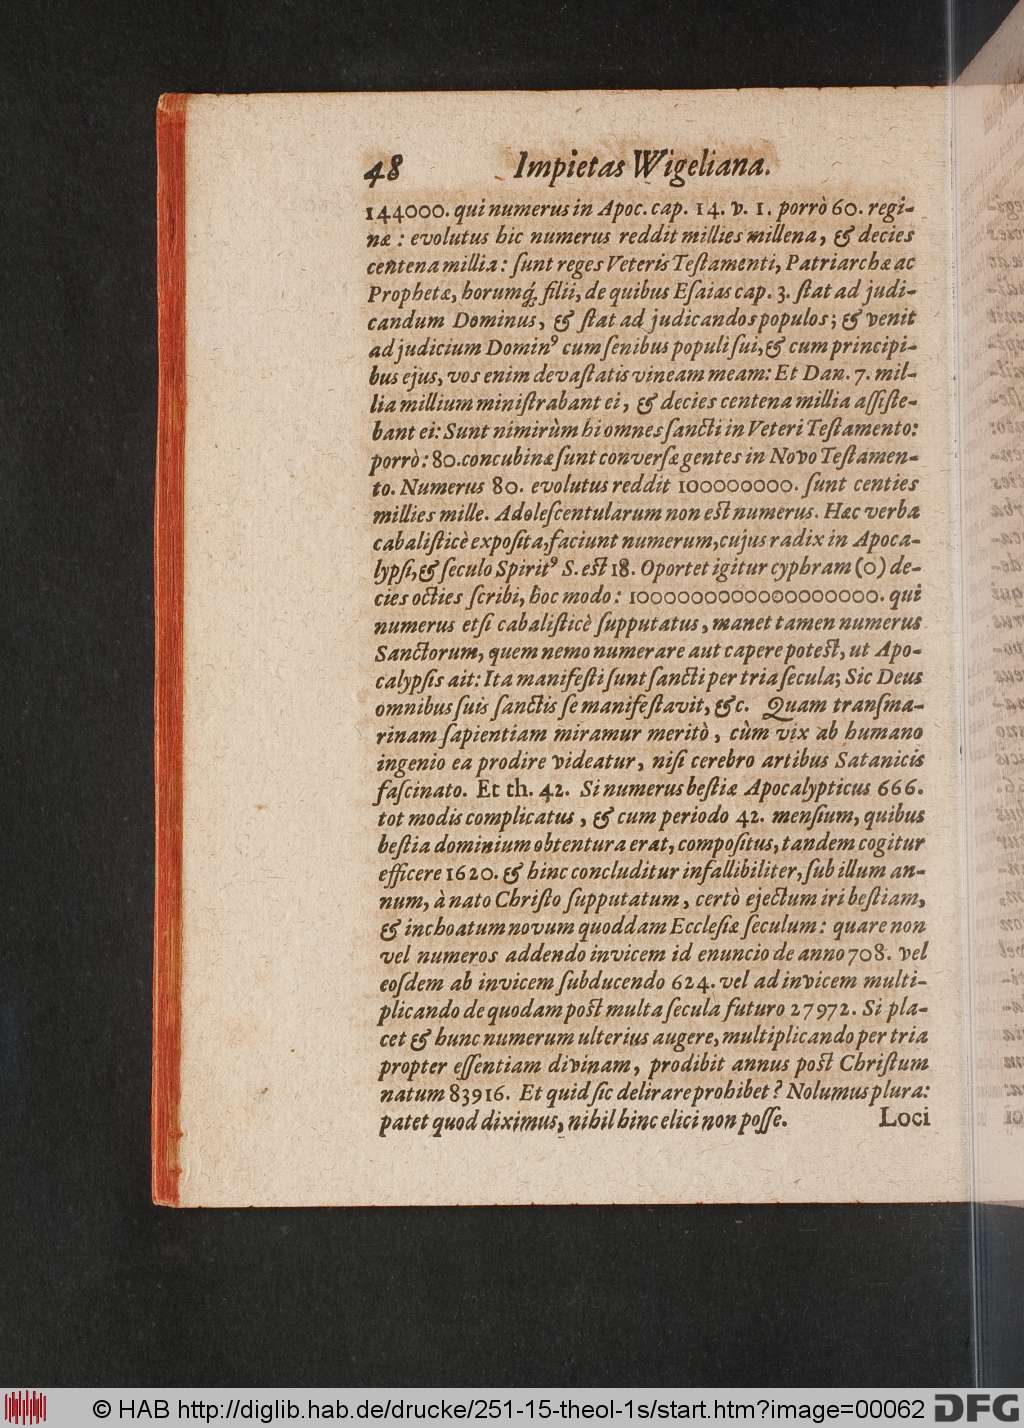 48 Impietas Wigeliana.
144000. qui numerus in Apoc. cap. 14. v. 1. porrò 60. regi-
næ : evolutus hic numerus reddit millies millena, & decies
centena millia: ſunt reges Veteris Teſtamenti, Patriarchæ ac
Prophetæ, horumq́; filii, de quibus Eſaias cap. 3. ſtat ad judi-
candum Dominus, & ſtat ad judicandos populos; & venit
ad judicium Dominꝰ cum ſenibus populi ſui, & cum principi-
bus ejus, vos enim devaſtatis vineam meam: Et Dan. 7. mil-
lia millium miniſtrabant ei, & decies centena millia aſſiſte-
bant ei: Sunt nimirùm hi omnes ſancti in Veteri Teſtamento:
porrò: 80. concubinæ ſunt converſæ gentes in Novo Teſtamen-
to. Numerus 80. evolutus reddit 100000000. ſunt centies
millies mille. Adoleſcentularum non eſt numerus. Hæc verba
cabaliſticè expoſita, faciunt numerum, cujus radix in Apoca-
lypſi, & ſeculo Spiritꝰ S. eſt 18. Oportet igitur cyphram (0) de-
cies octies ſcribi, hoc modo: 1000000000000000000. qui
numerus etſi cabaliſticè ſupputatus, manet tamen numerus
Sanctorum, quem nemo numerare aut capere poteſt, ut Apo-
calypſis ait: Ita manifeſti ſunt ſancti per tria ſecula; Sic Deus
omnibus ſuis ſanctis ſe manifeſtavit, &c. Quam tranſma-
rinam ſapientiam miramur meritò, cùm vix ab humano
ingenio ea prodire videatur, niſi cerebro artibus Satanicis
faſcinato. Et th. 42. Si numerus beſtiæ Apocalypticus 666.
tot modis complicatus, & cum periodo 42. menſium, quibus
beſtia dominium obtentura erat, compoſitus, tandem cogitur
efficere 1620. & hinc concluditur infallibiliter, ſub illum an-
num, à nato Chriſto ſupputatum, certò ejectum iri beſtiam,
& inchoatum novum quoddam Eccleſiæ ſeculum: quare non
vel numeros addendo invicem id enuncio de anno 708. vel
eoſdem ab invicem ſubducendo 624. vel ad invicem multi-
plicando de quodam poſt multa ſecula futuro 27972. Si pla-
cet & hunc numerum ulterius augere, multiplicando per tria
propter eſſentiam divinam, prodibit annus poſt Chriſtum
natum 83916. Et quid ſic delirare prohibet? Nolumus plura:
patet quod diximus, nihil hinc elici non poſſe. Loci
© HAB http://diglib.hab.de/drucke/251-15-theol-1s/start.htm?image=00062 DFG